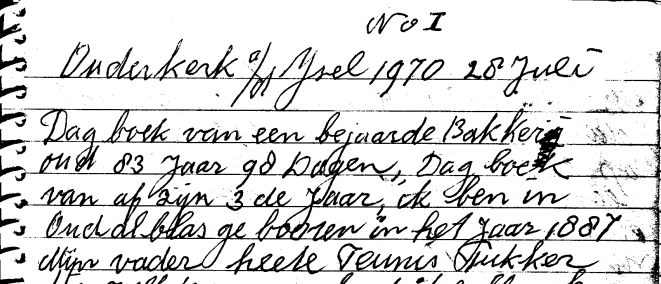 No I
Ouderkerk a/d Ysel 1970 28 Juli
Dag boek van een bejaarde Bakker
oud 83 Jaar 98 Dagen, Dag boek
van af zijn 3 de Jaar, ik ben in
Oud alblas ge booren in het Jaar 1887
Mijn vader heete Teunis